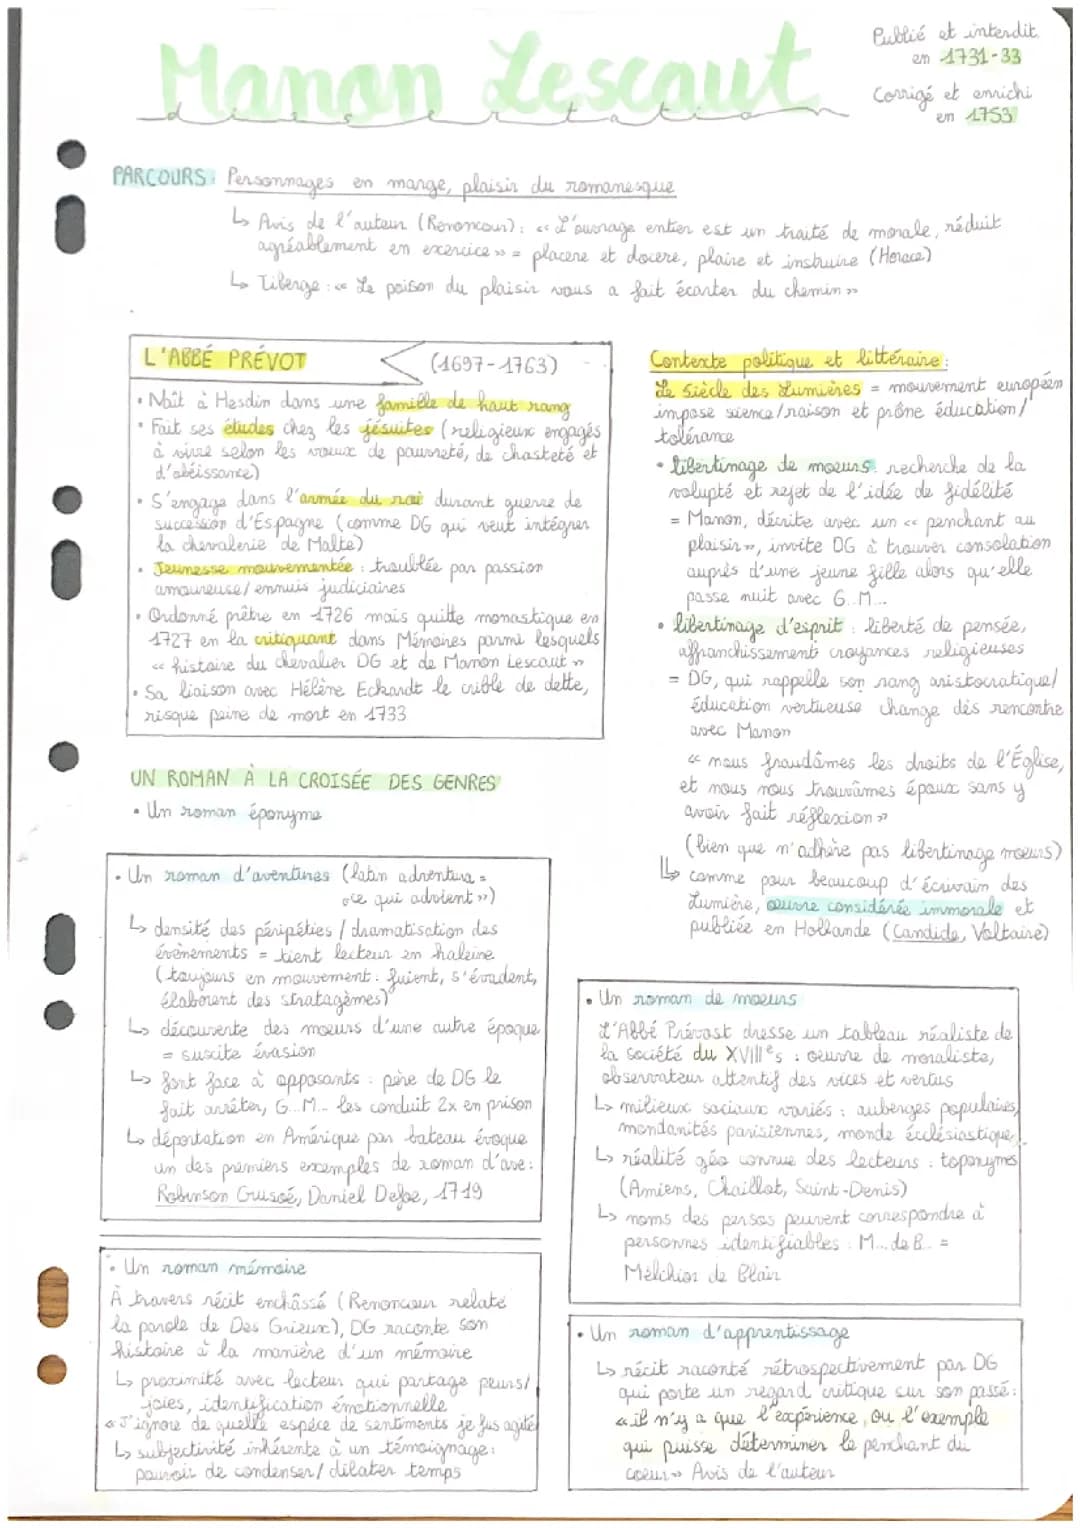 Manon Lescaut
dissertation
Publié et interdit
en 1731-33
Corrigé et enrichi
en 1753
PARCOURS : Personnages en marge, plaisir du romanesque
↳ Avis de l'auteur (Renoncour) : « L'ouvrage entier est un traité de morale, réduit
agréablement en exercice » = placere et docere, plaire et instruire (Horace)
↳ Tiberge : « Le poison du plaisir vous a fait écarter du chemin »
L'ABBÉ PRÉVOT (1697-1763)
• Naît à Hesdin dans une famille de haut rang
• Fait ses études chez les jésuites (religieux engagés
à vivre selon les voeux de pauvreté, de chasteté et
d'obéissance)
• S'engage dans l'armée du roi durant guerre de
succession d'Espagne (comme DG qui veut intégrer
la chevalerie de Malte)
• Jeunesse mouvementée : troublée par passion
amoureuse/ ennuis judiciaires
• Ordonné prêtre en 1726 mais quitte monastique en
1727 en la critiquant dans Mémoires parmi lesquels
« histoire du chevalier DG et de Manon Lescaut »
• Sa liaison avec Hélène Eckardt le crible de dette,
risque peine de mort en 1733
Contexte politique et littéraire :
Le siècle des Lumières = mouvement européen
impose science/raison et prône éducation/
tolérance
• libertinage de moeurs : recherche de la
volupté et rejet de l'idée de fidélité
= Manon, décrite avec un « penchant au
plaisir », invite DG à trouver consolation
auprès d'une jeune fille alors qu'elle
passe nuit avec G..M...
• libertinage d'esprit : liberté de pensée,
affranchissement croyances religieuses
= DG, qui rappelle son rang aristocratique/
éducation vertueuse change dès rencontre
avec Manon
« nous fraudâmes les droits de l'Église,
et nous nous trouvâmes époux sans y
avoir fait réflexion »
(bien que n'adhère pas libertinage moeurs)
↳ comme pour beaucoup d'écrivain des
Lumière, œuvre considérée immorale et
publiée en Hollande (Candide, Voltaire)
UN ROMAN À LA CROISÉE DES GENRES
• Un roman éponyme
• Un roman d'aventures (latin adventura =
« ce qui advient »)
↳ densité des péripéties / dramatisation des
évènements = tient lecteur en haleine
(toujours en mouvement : fuient, s'évadent,
élaborent des stratagèmes)
↳ découverte des moeurs d'une autre époque
= suscite évasion
↳ font face à opposants : père de DG le
fait arrêter, G...M... les conduit 2x en prison
↳ déportation en Amérique par bateau évoque
un des premiers exemples de roman d'ave :
Robinson Crusoé, Daniel Defoe, 1719
• Un roman mémoire
À travers récit enchâssé (Renoncour relate
la parole de Des Grieux), DG raconte son
histoire à la manière d'un mémoire
↳ proximité avec lecteur qui partage peurs/
joies, identification émotionnelle
« J'ignore de quelle espèce de sentiments je fus agité
↳ subjectivité inhérente à un témoignage :
pouvoir de condenser/ dilater temps
• Un roman de moeurs
L'Abbé Prévost dresse un tableau réaliste de
la société du XVIIIe s : oeuvre de moraliste,
observateur attentif des vices et vertus
↳ milieux sociaux variés : auberges populaires,
mondanités parisiennes, monde écclésiastique..
↳ réalité géo connue des lecteurs : toponymes
(Amiens, Chaillot, Saint-Denis)
↳ noms des persos peuvent correspondre à
personnes identifiables : M... de B... =
Melchior de Blair
• Un roman d'apprentissage
↳ récit raconté rétrospectivement par DG
qui porte un regard critique sur son passé :
« il n'y a que l'expérience, ou l'exemple
qui puisse déterminer le penchant du
coeur » Avis de l'auteur